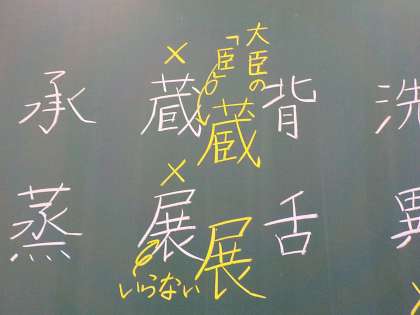 承 蔵 蔵 背 洗
大臣の
「臣」
蒸 展 展 舌 異
いらない